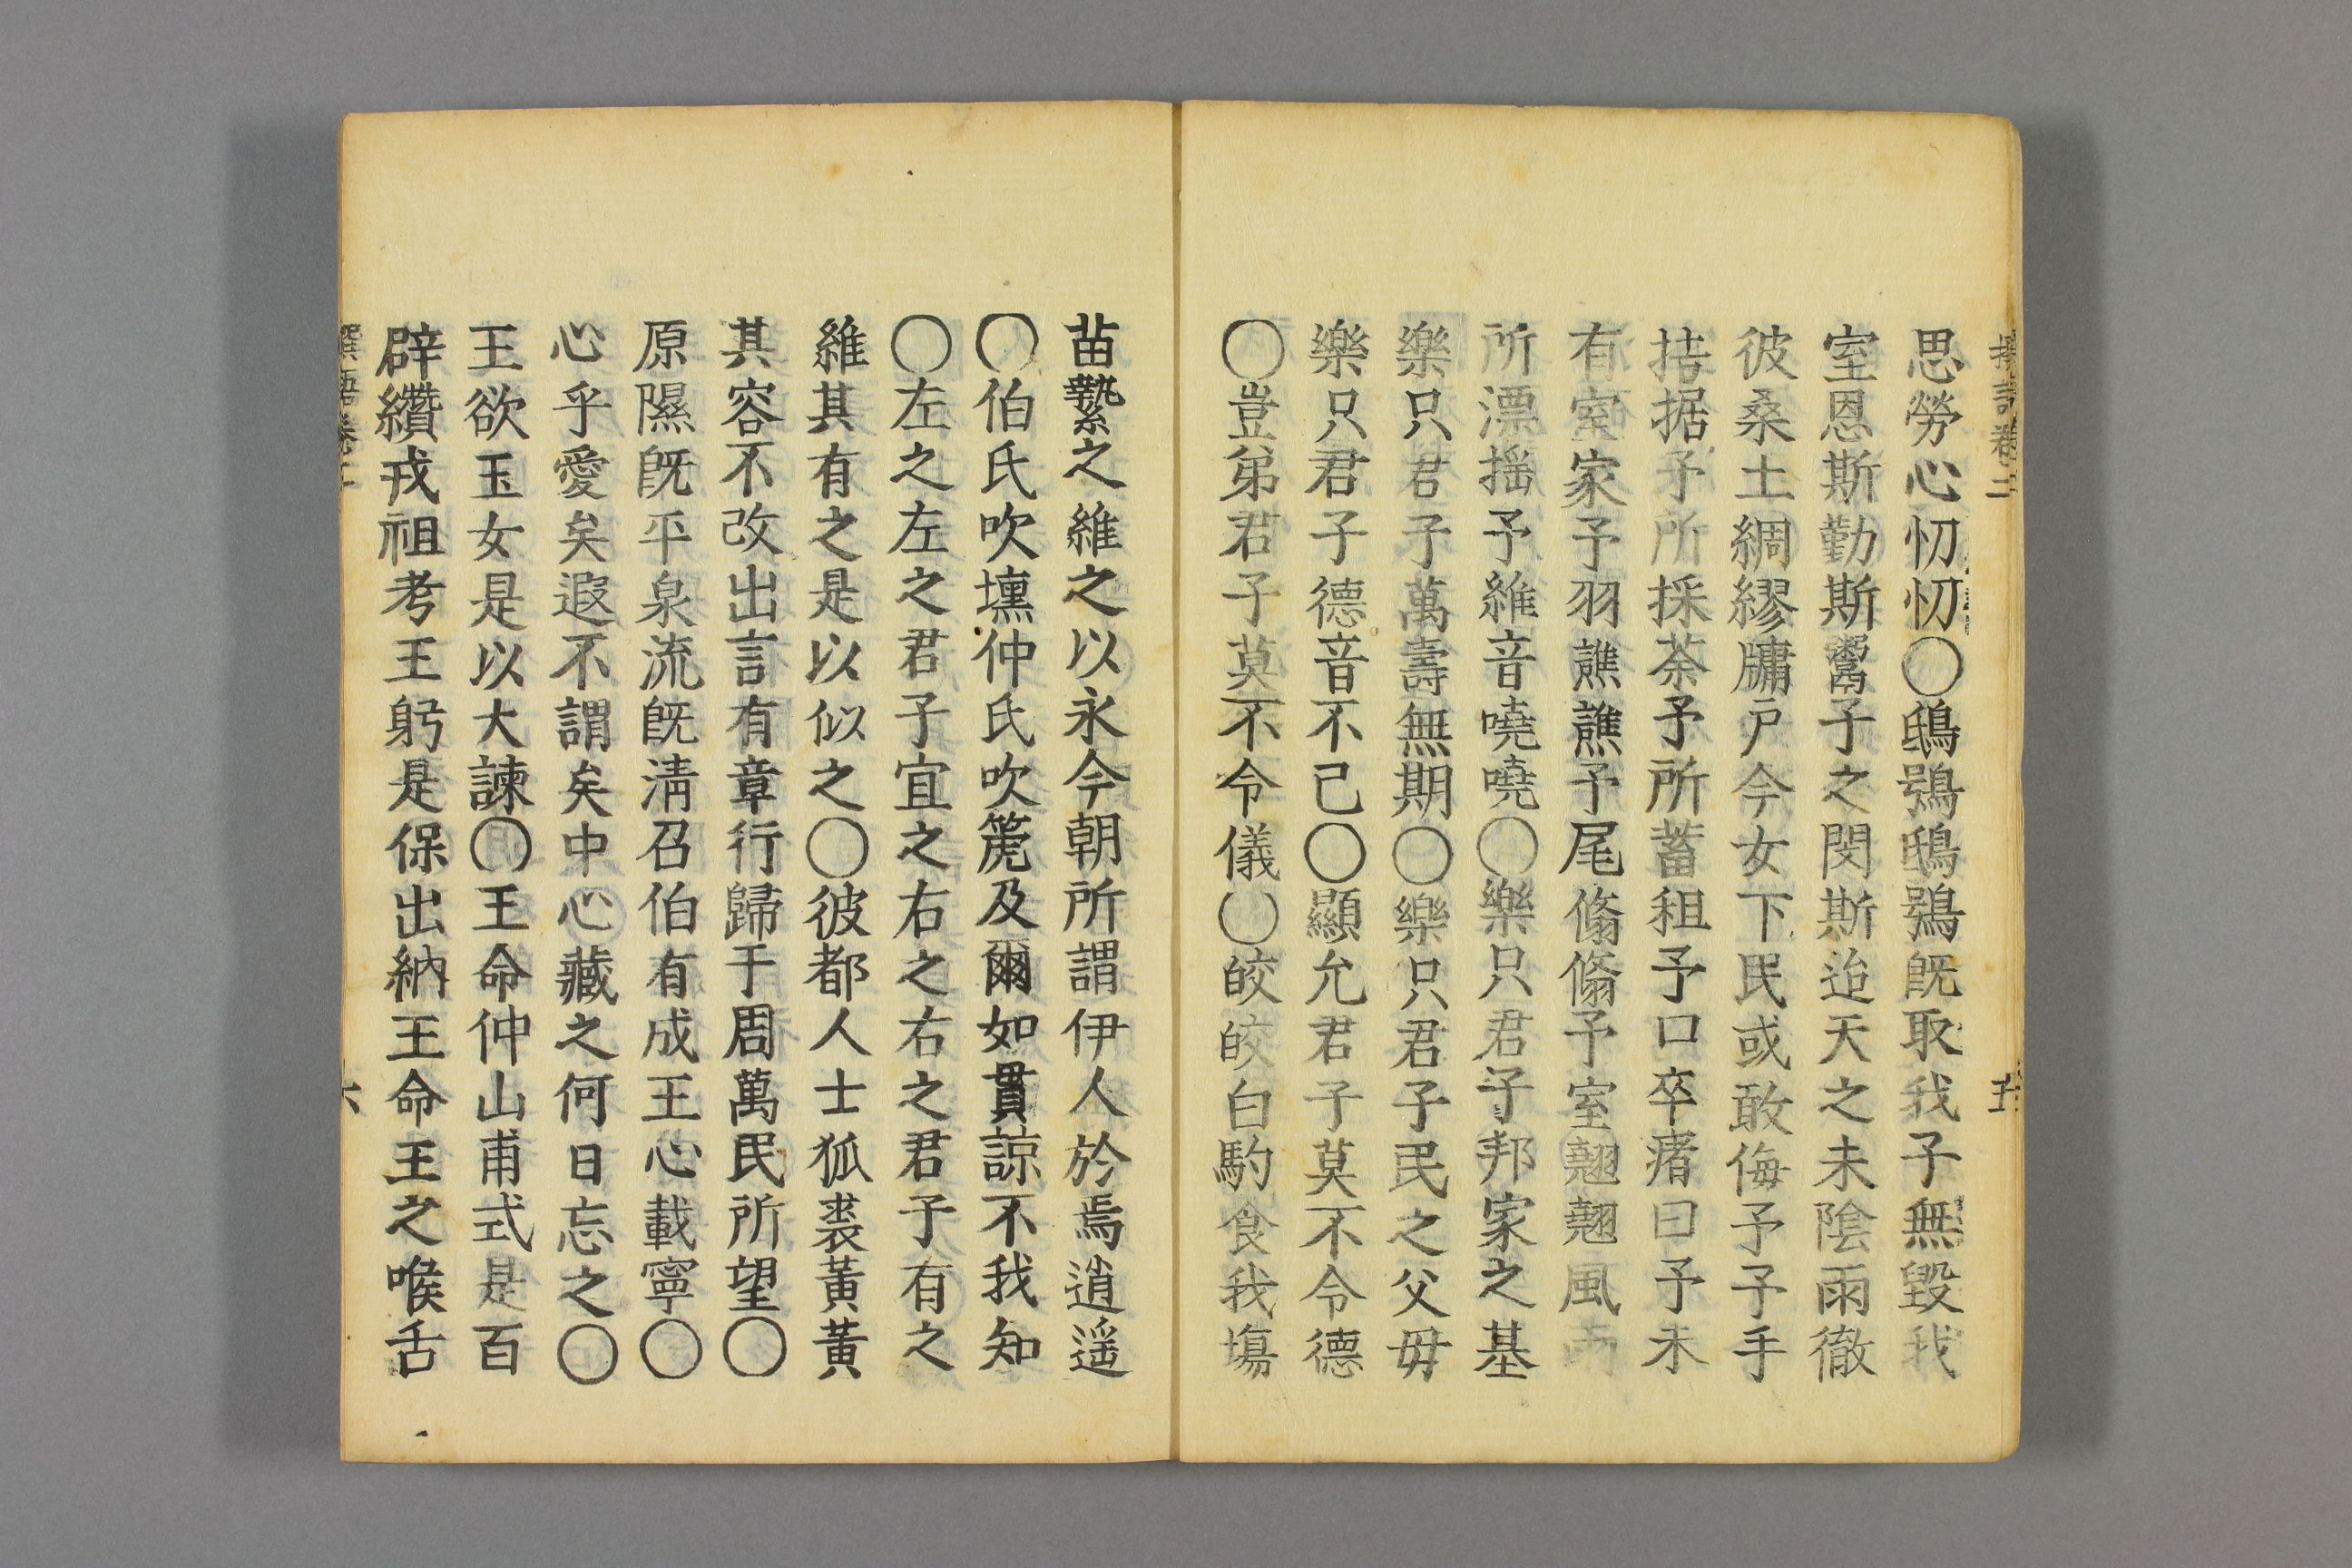 思勞心忉忉〇鴟鴞鴟鴞旣取我子無毀我
室恩斯勤斯鬻子之閔斯迨天之未陰雨徹
彼桑土綢繆牖戶今女下民或敢侮予予手
拮据予所採荼予所蓄租予口卒瘏曰予未
有室家予羽譙譙予尾翛翛予室翹翹風雨
所漂搖予維音嘵嘵〇樂只君子邦家之基
樂只君子萬壽無期〇樂只君子民之父毋
樂只君子德音不已〇顯允君子莫不令德
〇豈弟君子莫不令儀〇皎皎白駒食我場
苗縶之維之以永今朝所謂伊人於焉逍遥
〇伯氏吹壎仲氏吹篪及爾如貫諒不我知
〇左之左之君子宜之右之右之君子有之
維其有之是以似之〇彼都人士狐裘黃黃
其容不改出言有章行歸于周萬民所望〇
原隰旣平泉流旣淸召伯有成王心載寧〇
心乎愛矣遐不謂矣中心藏之何日忘之〇
王欲玉女是以大諫〇王命仲山甫式是百
辟纘戎祖考王躬是保出納王命王之喉舌
六